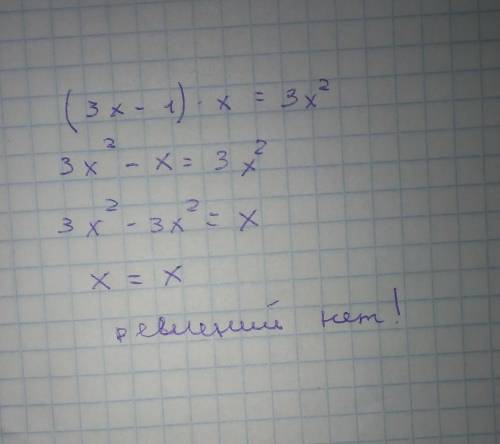 (3x - 1) · x = 3x²
3x² - x = 3x²
3x² - 3x² = x
x = x
решений нет!